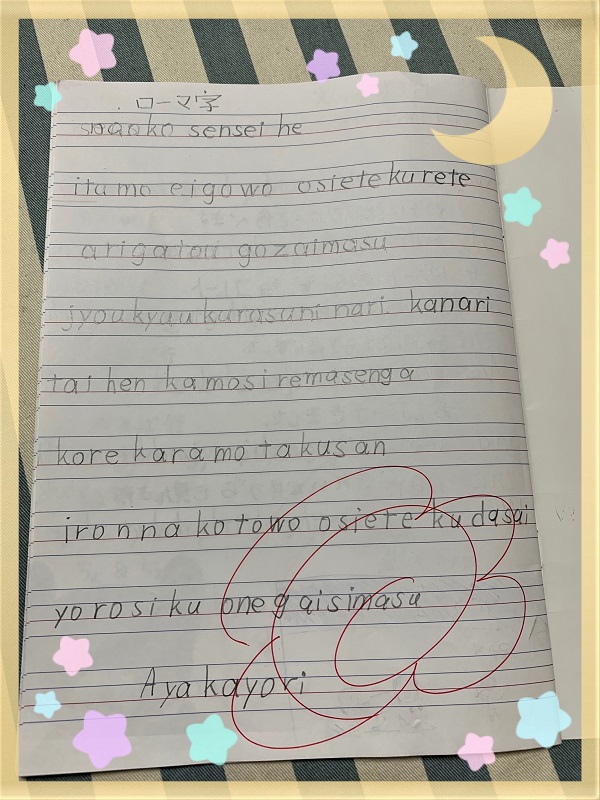 ローマ字
sensei he
itumo eigowo osiete kurete
arigatou gozaimasu
jyoukyuukurasuni nari kanari
taihen kamosiremasenga
kore karamo takusan
ironna kotowo osiete kudasai
yorosiku onegaisimasu
Ayakayori